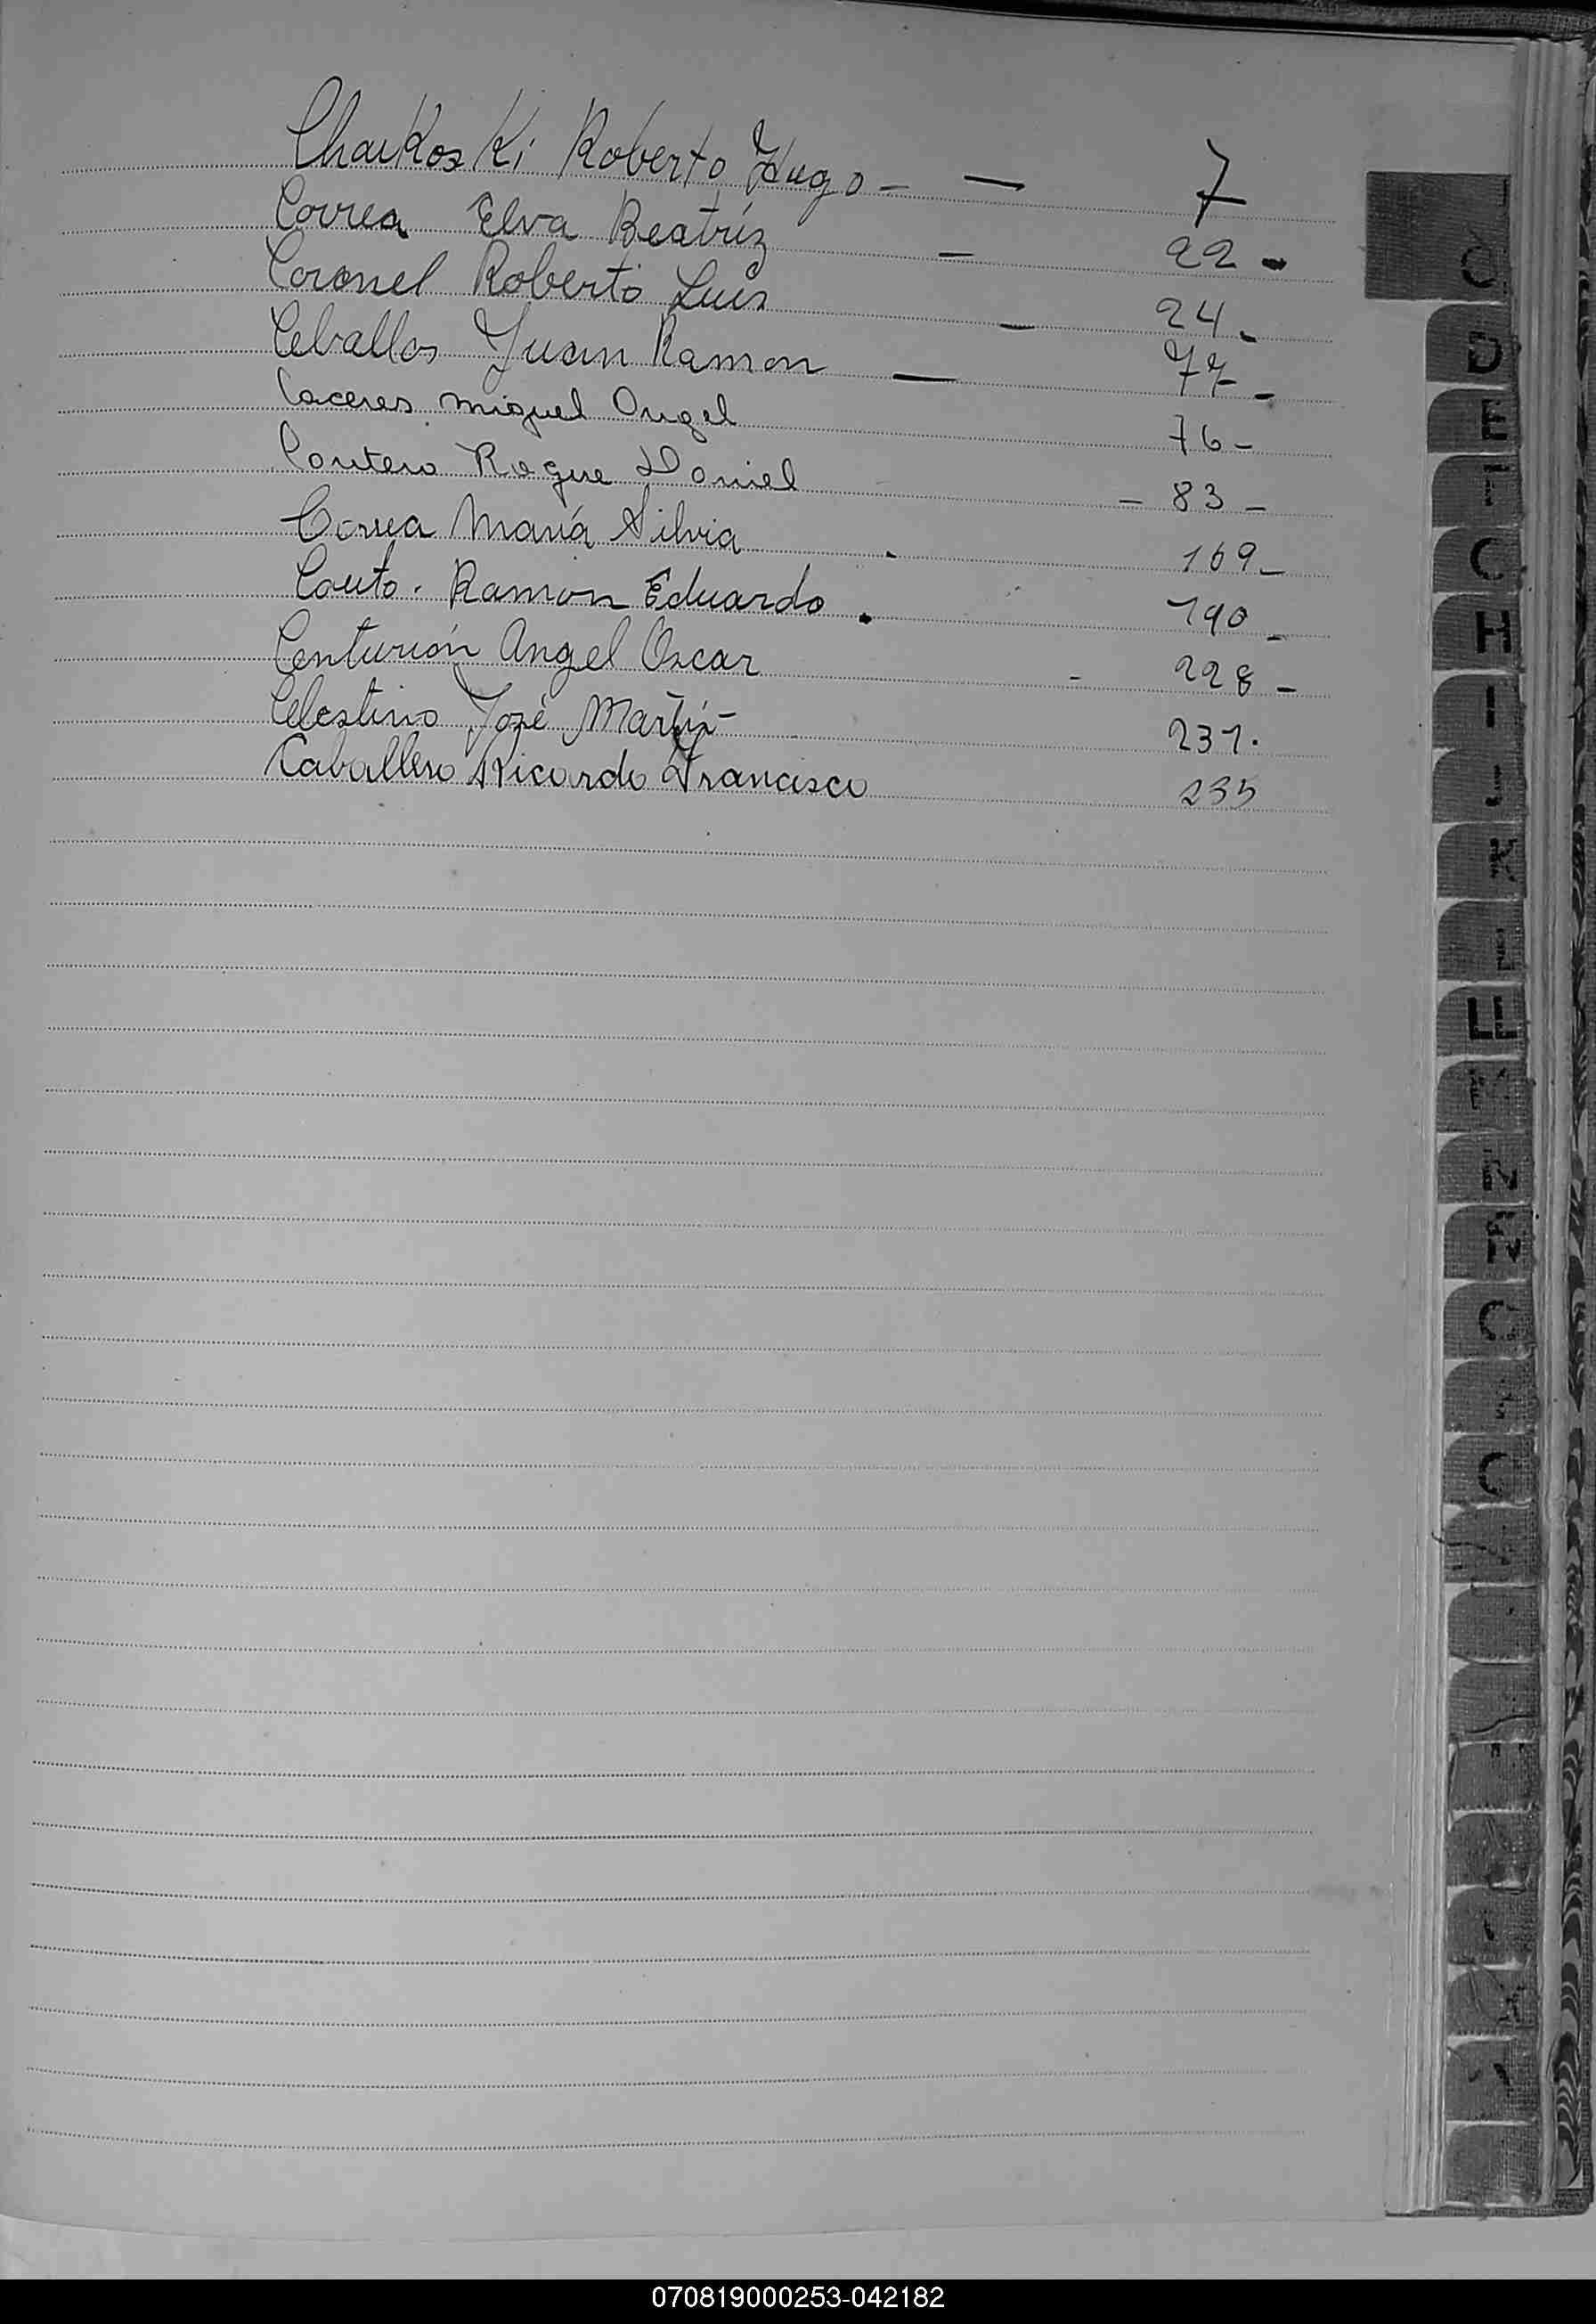 Chaikoski Roberto Hugo - — 7
Correa Elva Beatríz — 22 -
Coronel Roberto Luis — 24 -
Ceballos Juan Ramon — 77 -
Caceres Miguel Angel 76 -
Contero Roque Daniel - 83 -
Correa María Silvia . 169 -
Couto . Ramón Eduardo . 190 -
Centurión Angel Oscar - 228 -
Celestino José Martín - 231 .
Caballero Ricardo Francisco 235
C
D
E
C
H
I
K
LL
N
Ñ
O
070819000253-042182